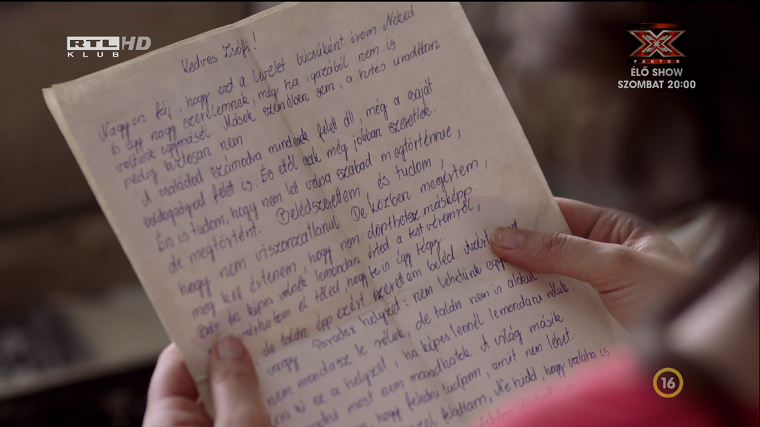 RTL HD
KLUB
X FAKTOR
ÉLŐ SHOW
SZOMBAT 20:00
Kedves Zsófi!
Nagyon fáj, hogy ezt a levelet búcsúként írom Neked
és egy nagy szerelemnek, még ha igazából nem is
voltunk egymáséi. Mások szemében sem, a hites uradéban
pedig biztosan nem.
A családod számodra mindenek felett áll, még a saját
boldogságod felett is. És ettől csak még jobban szeretlek.
Én is tudom, hogy nem lett volna szabad megtörténnie,
de megtörtént. Beleszerettem, és tudom,
hogy nem viszonzatlanul. De közben megértem,
meg kell értenem, hogy nem dönthetsz másképp.
Bár én képes volnék lemondani érted a testvéremről,
nem várhatom el tőled, hogy te is így tégy
de talán épp ezért szerettem beléd
vagy. Paradox helyzet: nem lehetünk
nem mondasz le róluk, de talán nem is
ha ez a helyzet, ha képes lennél lemondani róluk.
most nem maradhatok. A világ másik
hogy feledni tudjam, amit nem lehet.
Ne hidd, hogy valaha is
16